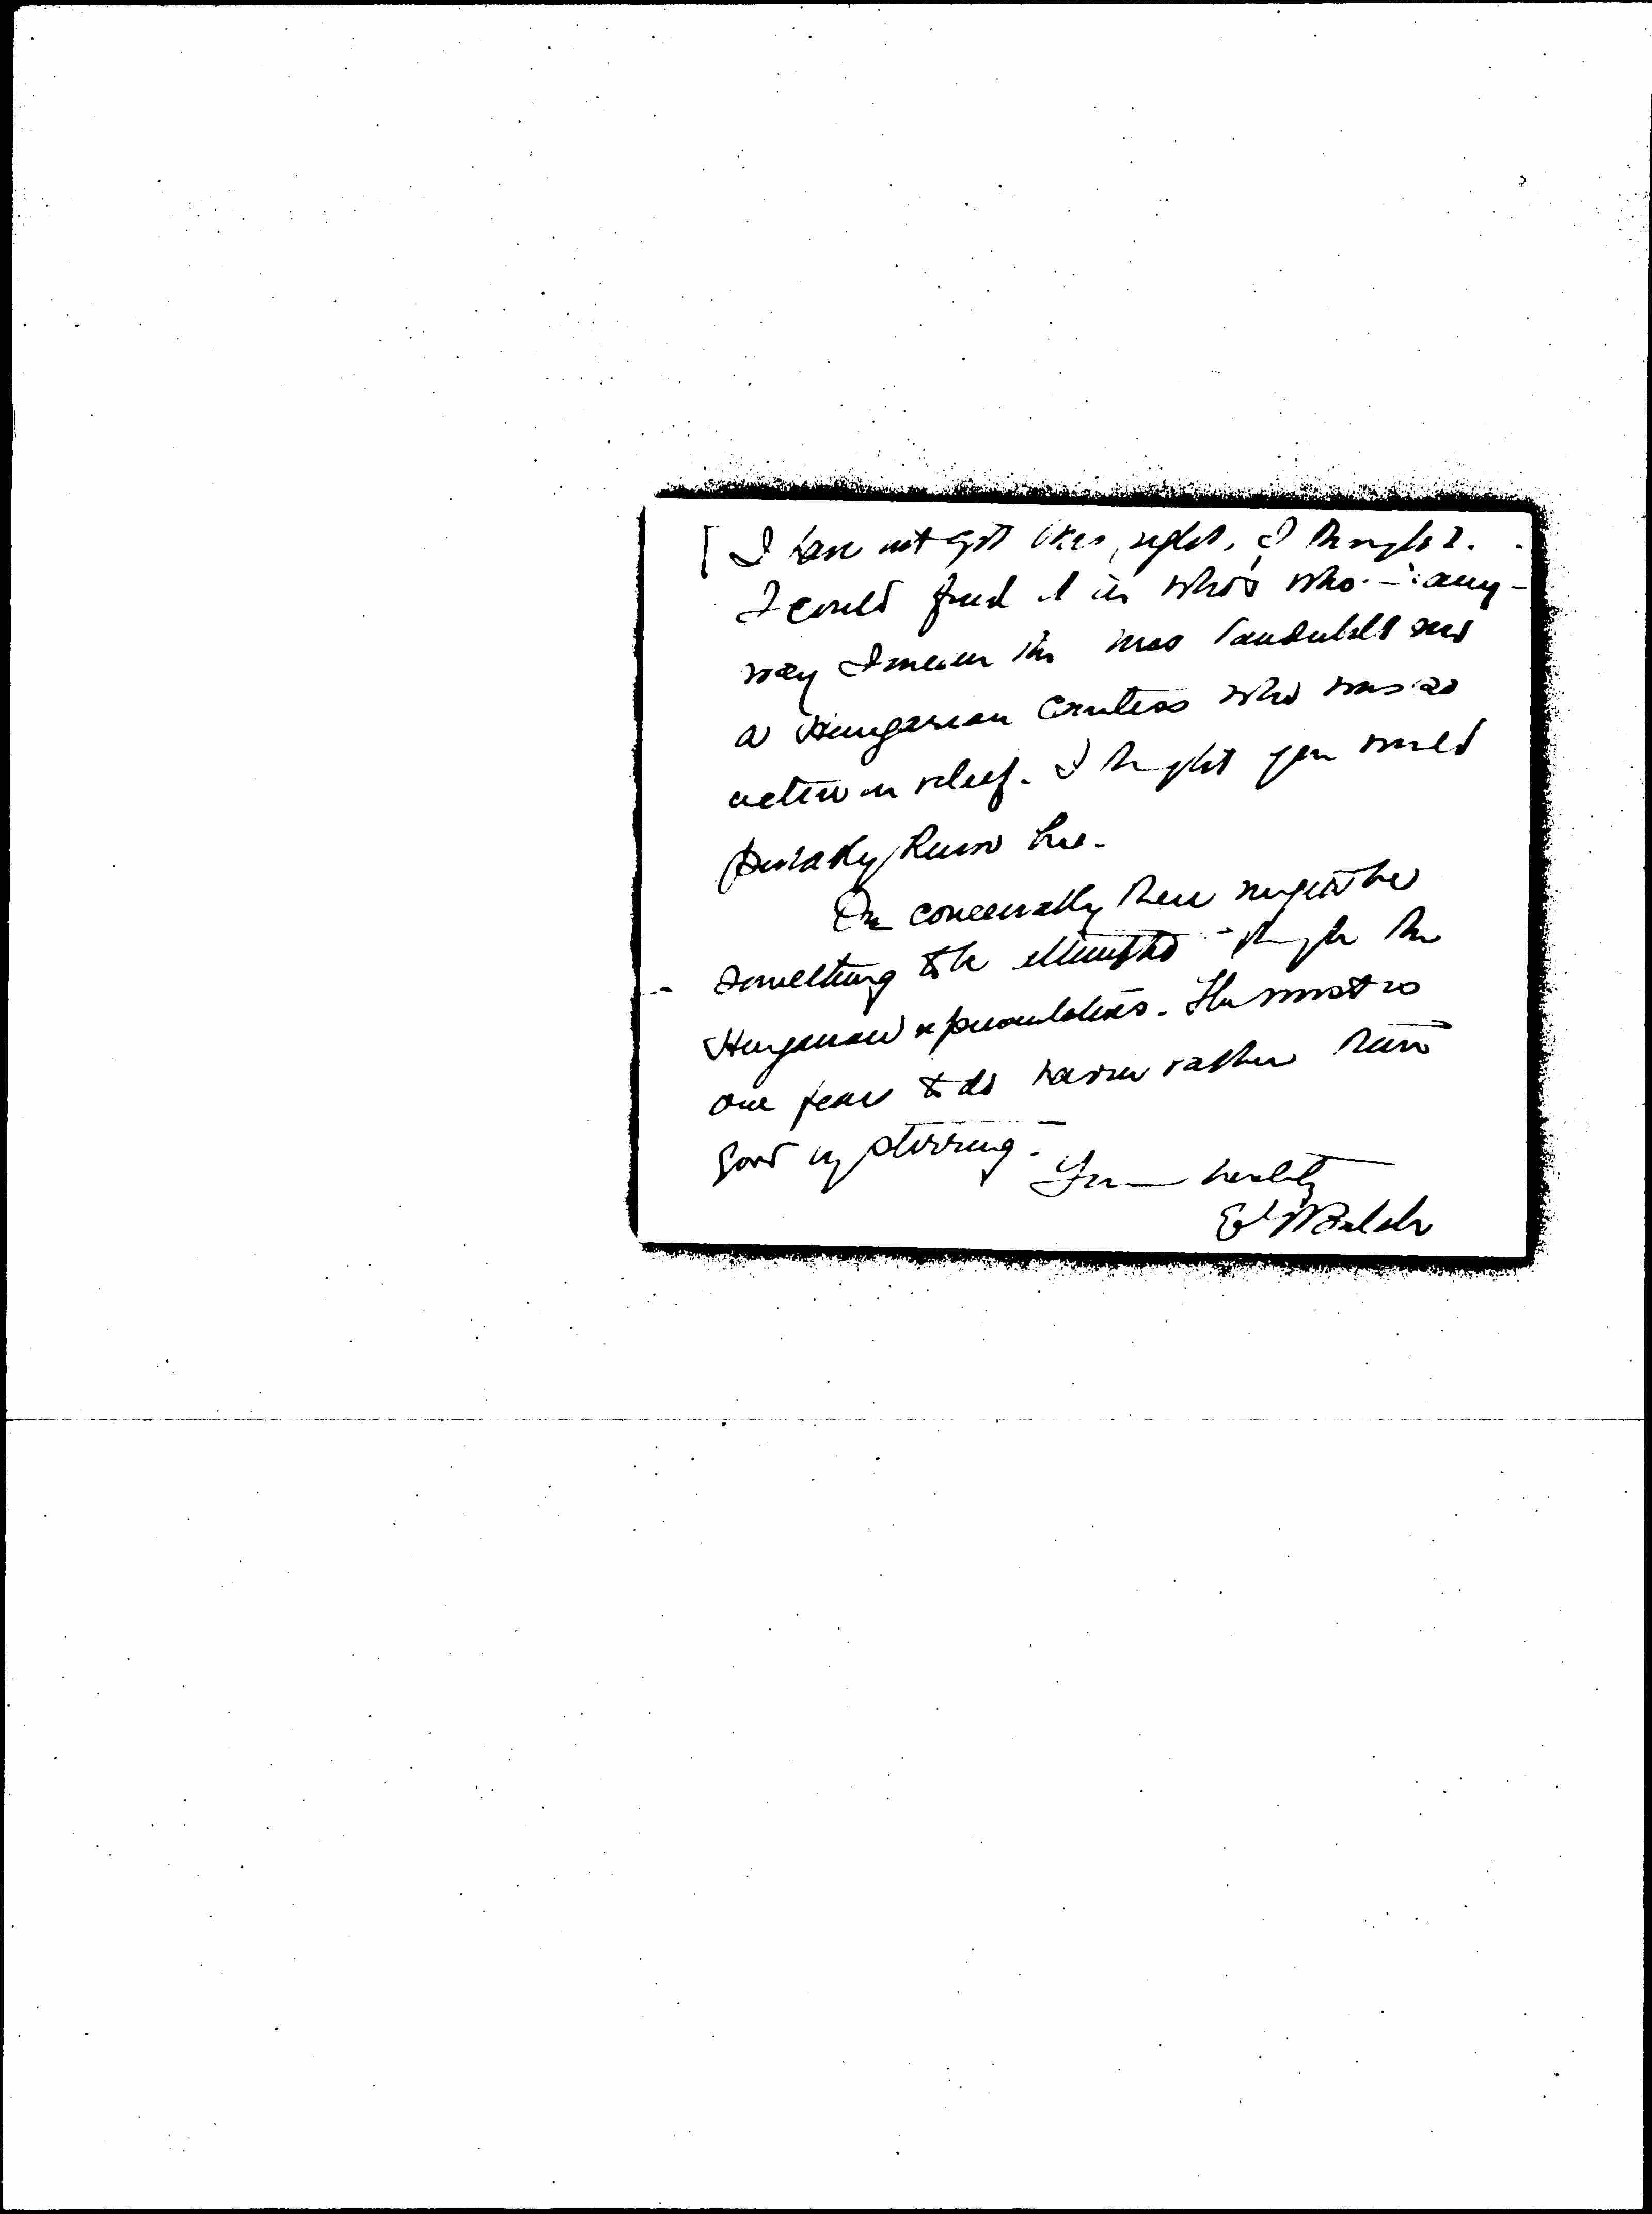 [ I have not got this right. I thought
I could find it in Who's Who — any-
way I mean the Miss Vanderbilt and
a Hungarian Countess who was so
active in relief. I thought you would
probably know her.
Conceivably there might be
something to be attempted through the
Hungarian representatives. The worst is
one fears to do harm rather than
good by stirring.
Yours heartily
E G Balch